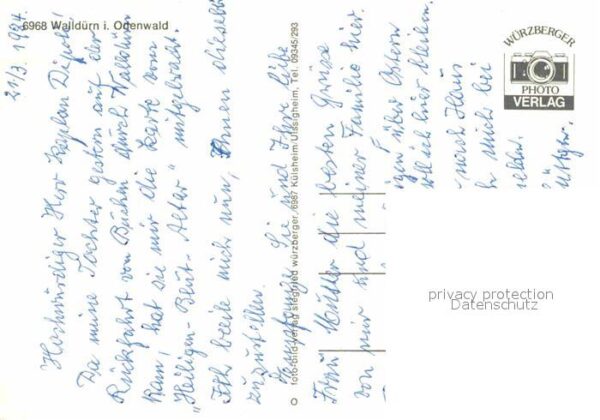 6968 Walldürn i. Odenwald
21/3. 1984.
Hochwürdiger Herr Kaplan Dipold!
Da meine Tochter gestern auf der
Rückfahrt von Buchen durch Walldürn
kam, hat sie mir die Karte vom
"Heiligen-Blut-Altar" mitgebracht.
Ich beeile mich nun, Ihnen dieselbe
zuzustellen.
Empfangen Sie und Ihre liebe
Frau Mutter die besten Grüsse
von mir und meiner Familie hier.
über Ostern
soll ich hier bleiben.
nach Haus
mich bei
foto-bild-verlag siegfried würzberger, 6987 Külsheim/Uissigheim, Tel. 09345/293
WÜRZBERGER
PHOTO
VERLAG
privacy protection
Datenschutz